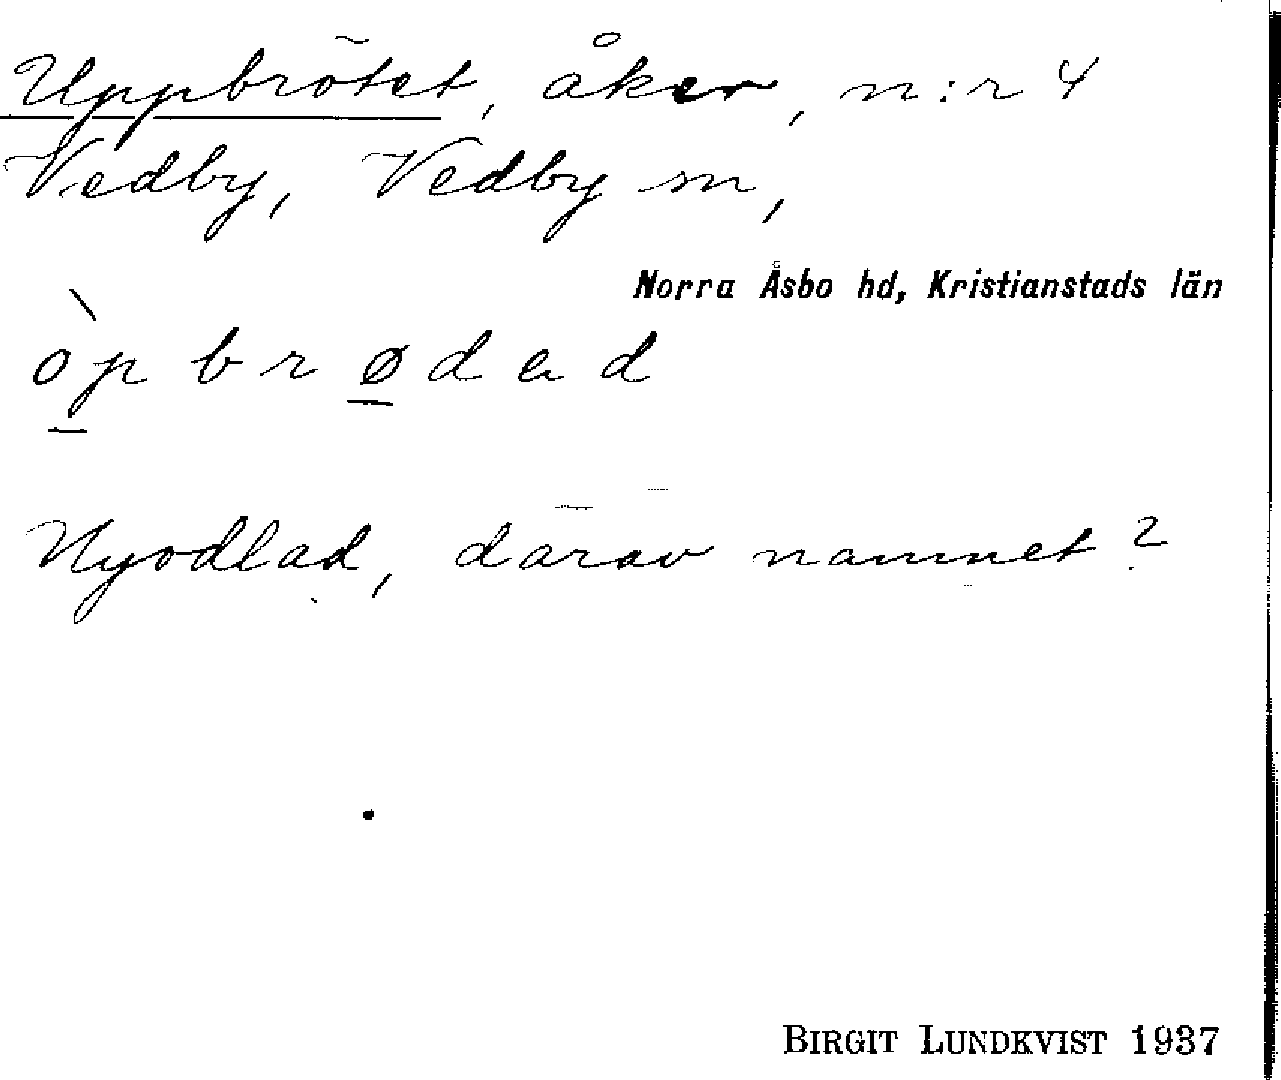 Uppbrötet, åker, n:r 4
Vedby, Vedby sn,
Norra Åsbo hd, Kristianstads län
òp brødad
Nyodlad, därav namnet?
BIRGIT LUNDKVIST 1937